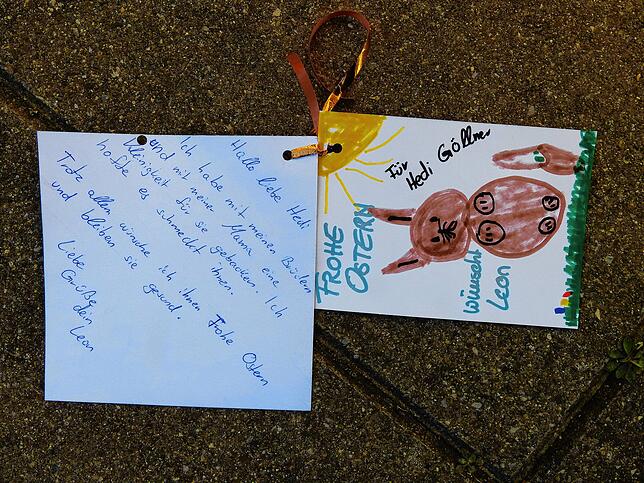 Hallo liebe Hedi
Ich habe mit meinen Brüdern
und mit meiner Mama eine
kleinigkeit für sie gebacken. Ich
hoffe es schmeckt ihnen.
Trotz allem wünsche ich ihnen Frohe Ostern
und bleiben sie gesund.
Liebe
Grüße
dein
Leon
Für
Hedi Göllner
FROHE
OSTERN
wünscht
Leon